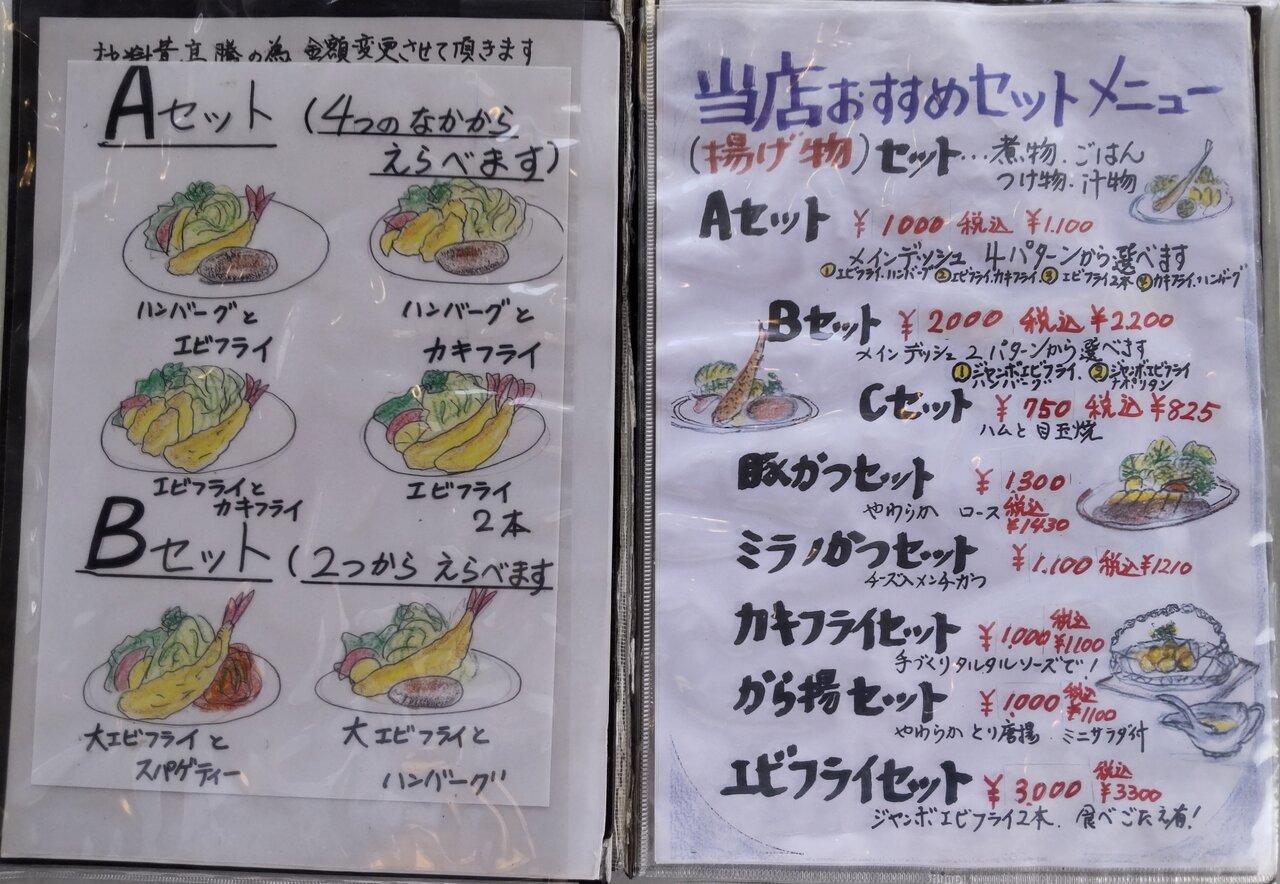 材料費高騰の為 金額変更させて頂きます
Aセット (4つのなかから
えらべます)
ハンバーグと
エビフライ
ハンバーグと
カキフライ
エビフライと
カキフライ
エビフライ
2本
Bセット (2つから えらべます
大エビフライと
スパゲティー
大エビフライと
ハンバーグ
当店おすすめセットメニュー
(揚げ物)セット…煮物.ごはん
つけ物.汁物
Aセット ¥1000 税込 ¥1.100
メインデッシュ 4パターンから選べます
①エビフライ.ハンバーグ②エビフライ.カキフライ.③エビフライ2本④カキフライ.ハンバーグ
Bセット ¥2000 税込 ¥2200
メインデッシュ 2パターンから選べます
①ジャンボエビフライ. ②ジャンボエビフライ
ハンバーグ ナポリタン
Cセット ¥750 税込 ¥825
ハムと目玉焼
豚かつセット ¥1300
やわらか ロース 税込
¥1430
ミラノかつセット ¥1.100 税込¥1210
チーズ入メンチかつ
カキフライセット ¥1.000 税込
¥1100
手づくりタルタルソースで!
がら揚セット ¥1000 税込
¥1100
やわらかとり唐揚 ミニサラダ付
エビフライセット ¥3.000 税込
¥3300
ジャンボエビフライ2本. 食べごたえ有!